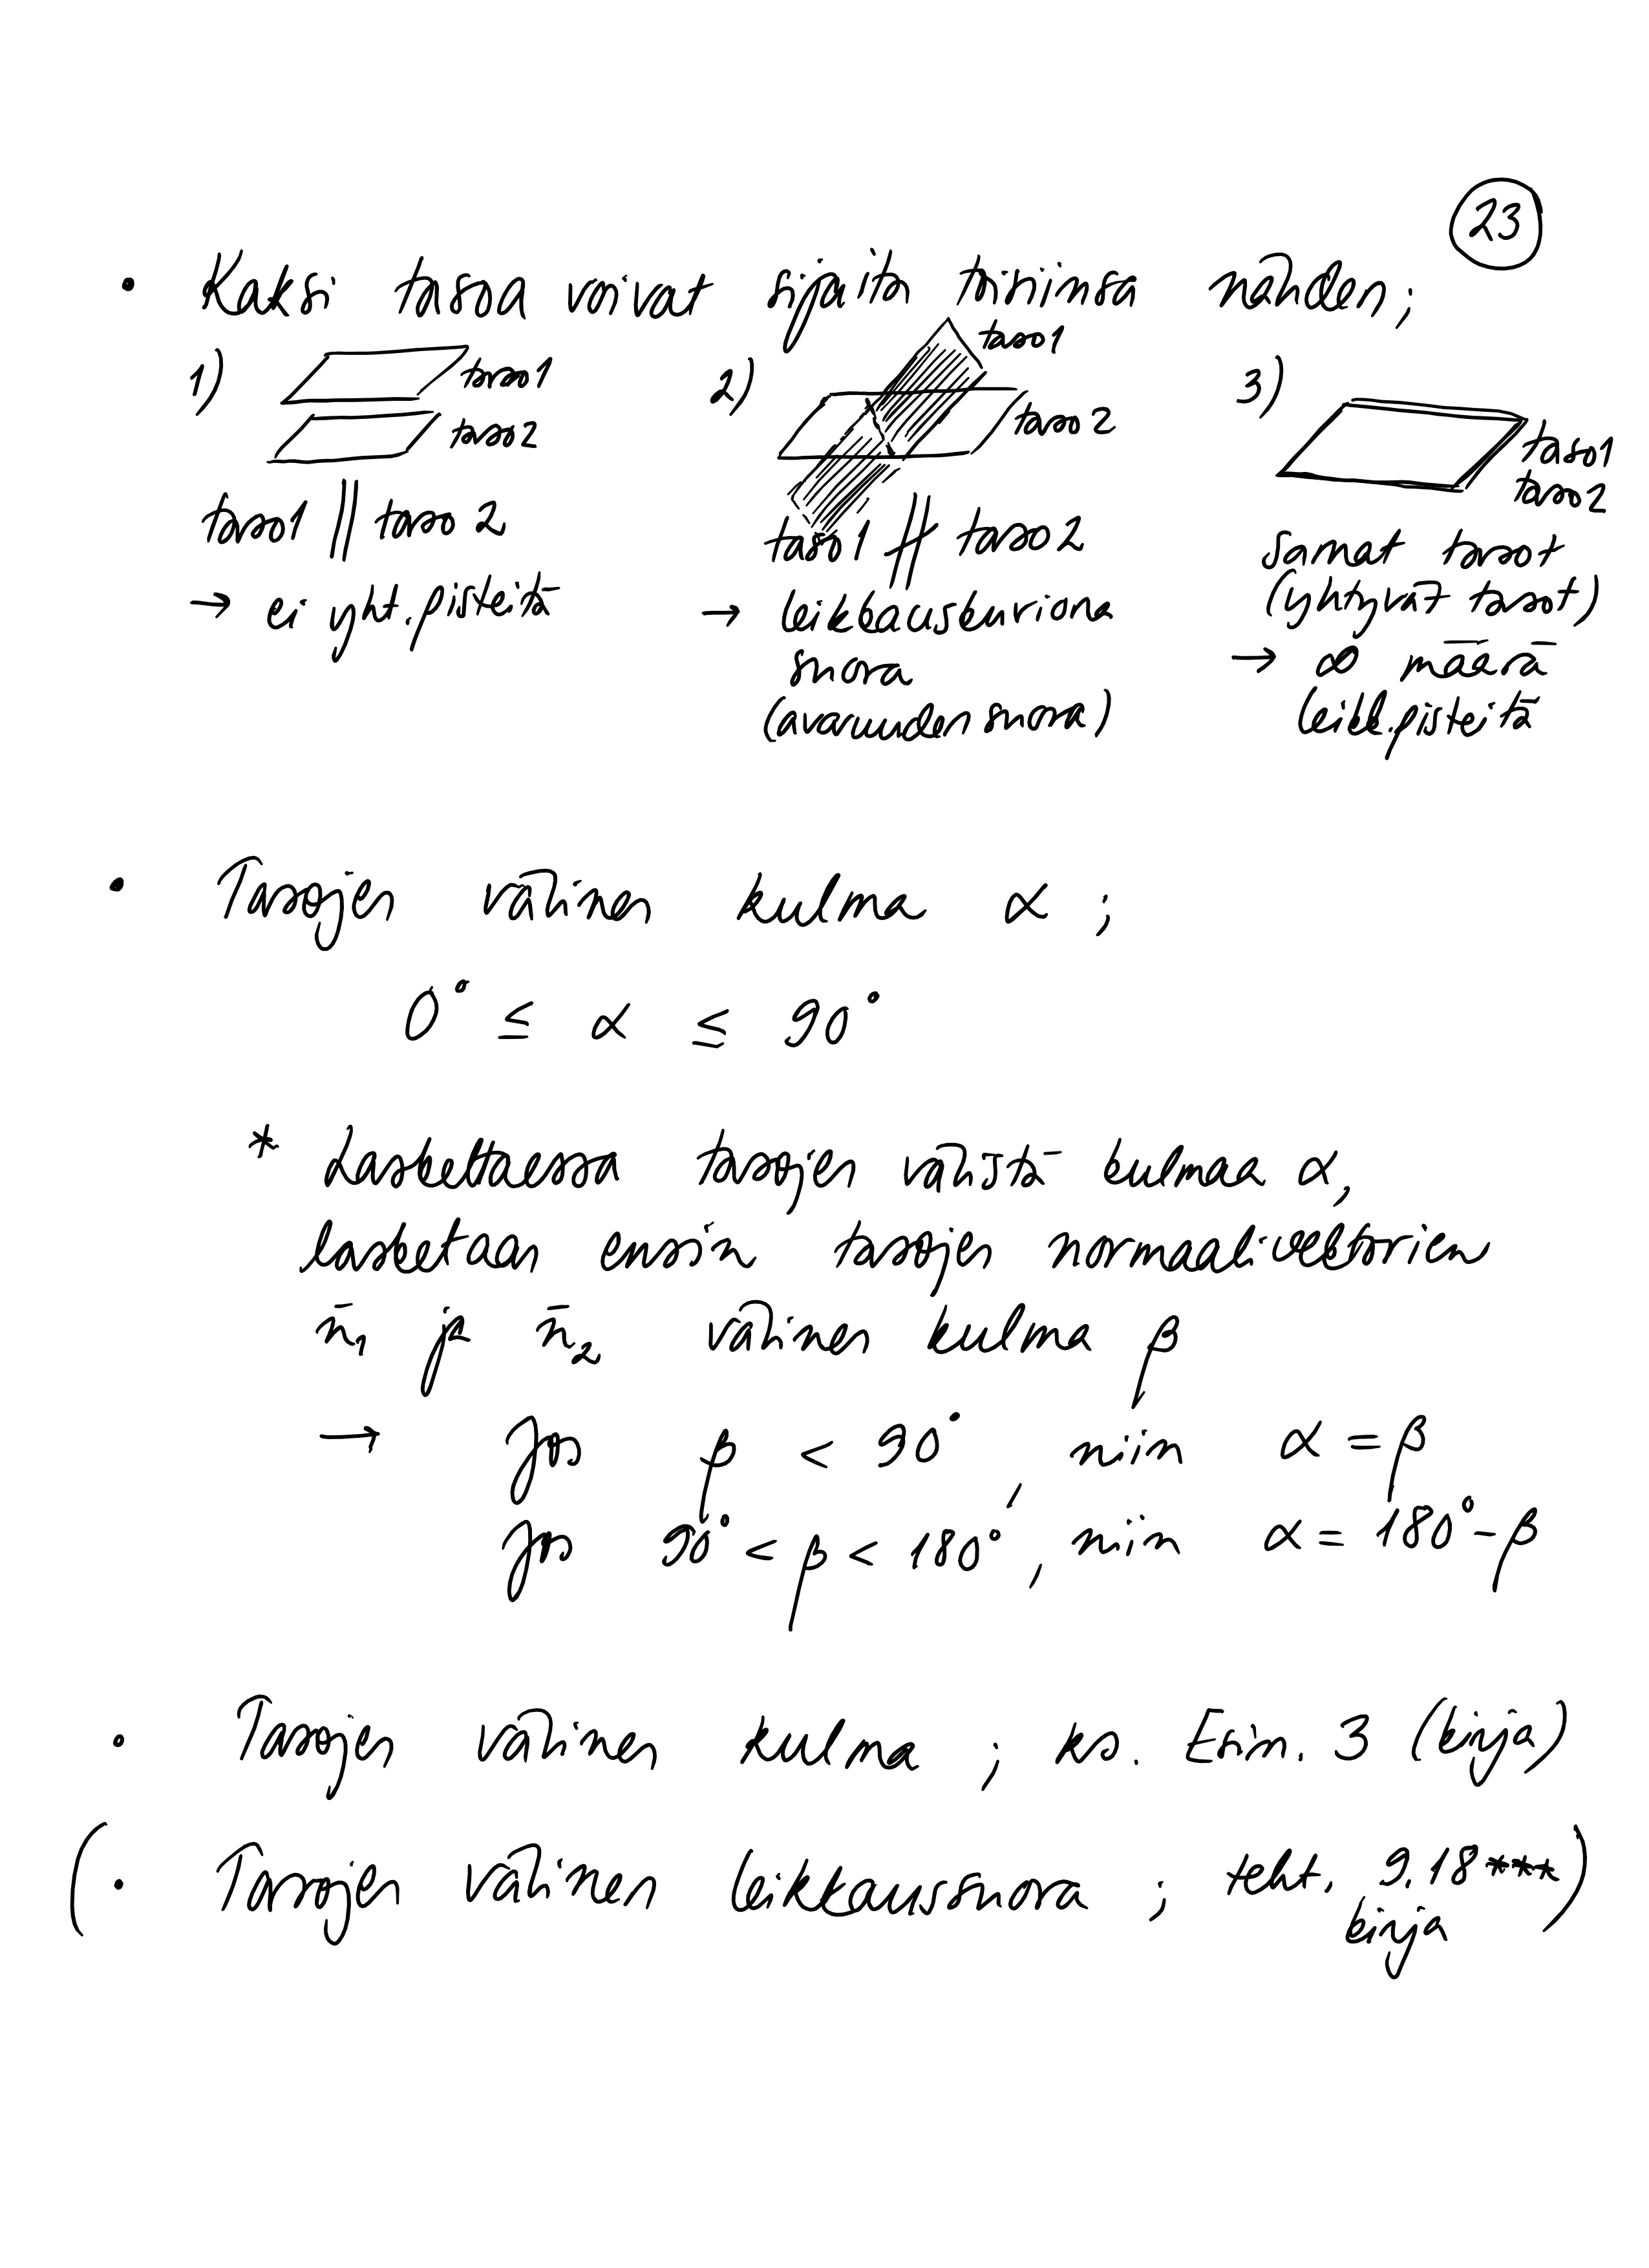 23
• Kaksi tasoa voivat sijaita toisiinsa nähden;
1) taso1
taso2
taso1 || taso 2
→ ei yht. pisteitä
2) taso1
taso 2
taso 1 ∦ taso 2
→ leikkauskuviona
suora
(avaruuden suora)
3) taso1
taso2
samat tasot
(yhtyvät tasot)
→ ∞ määrä
leikk. pisteitä
• Tasojen välinen kulma α ;
0° ≤ α ≤ 90°
* Laskettaessa tasojen välistä kulmaa α,
lasketaan ensin tasojen normaalivektorien
n̄₁ ja n̄₂ välinen kulma β
→ Jos β < 90°, niin α = β
Jos 90° < β < 180°, niin α = 180° - β
• Tasojen välinen kulma ; ks. Esim. 3 (kirja)
(• Tasojen välinen leikkaussuora ; teht. 9.18***)
kirja